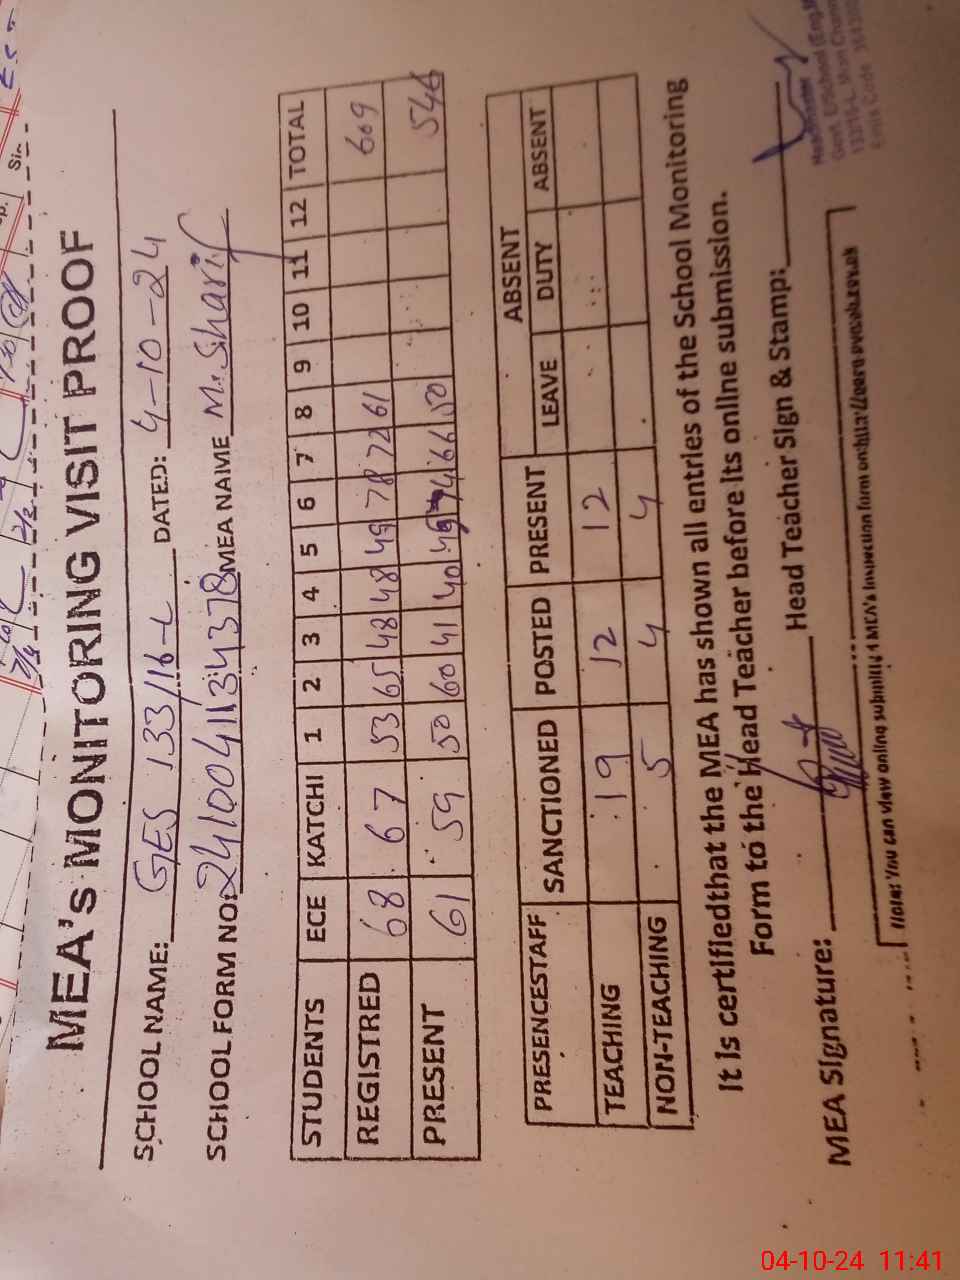 MEA's MONITORING VISIT PROOF
SCHOOL NAME: GES 133/16-L DATED: 4-10-24
SCHOOL FORM NO: 24100411343378 MEA NAME M. Sharif
STUDENTS ECE KATCHI 1 2 3 4 5 6 7 8 9 10 11 12 TOTAL
REGISTRED 68 67 53 65 48 48 49 78 72 61 609
PRESENT 61 59 50 60 41 40 45 74 66 50 546
ABSENT
PRESENCESTAFF SANCTIONED POSTED PRESENT LEAVE DUTY ABSENT
TEACHING 19 12 12
NON-TEACHING 5 4 4
It is certifiedthat the MEA has shown all entries of the School Monitoring
Form to the Head Teacher before its online submission.
MEA Signature: Head Teacher Sign & Stamp:
Headmaster
Note: You can view online submitted MEA's inspection form on
04-10-24 11:41